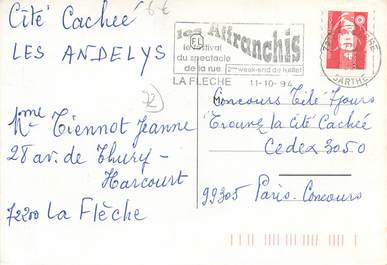 Cité Cachée
LES ANDELYS
6-€
72
Mme Tiennot Jeanne
28 av. de Thury-
Harcourt
72200 La Flèche
les Affranchis
le festival
du spectacle
de la rue
2ème week-end de juillet
LA FLECHE 11-10-94
SARTHE
Concours Télé 7 jours
Trouvez la Cité Cachée
Cedex 3050
99305 Paris-Concours